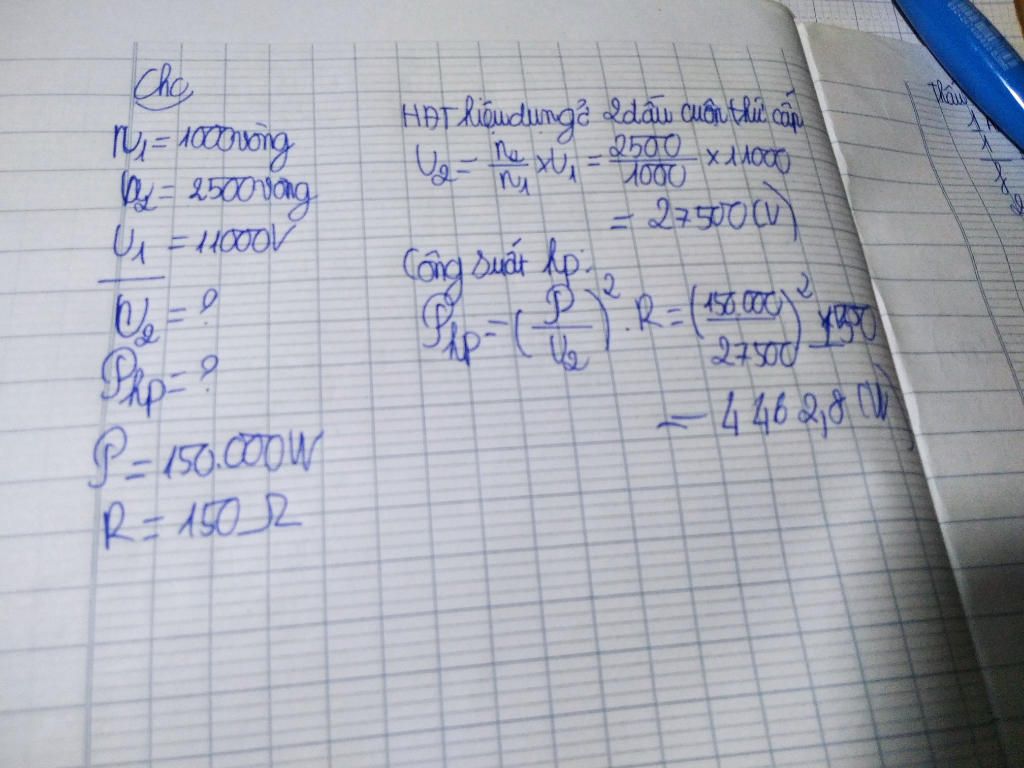 Cho
n1 = 1000 vòng
n2 = 2500 vòng
U1 = 11000V
U2 = ?
Php = ?
P = 150.000W
R = 150 Ω
HĐT hiệu dụng ở 2 đầu cuộn thứ cấp
U2 = n2/n1 × U1 = 2500/1000 × 11000
= 27500 (V)
Công suất hp:
Php = (P/U2)² . R = (150.000/27500)² × 150
= 4462,8 (W)